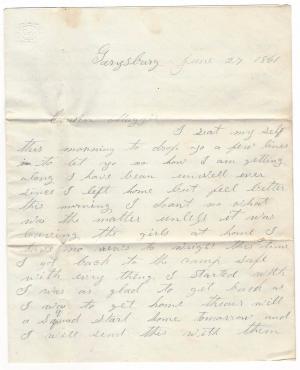 Garysburg June 27 1861
I seat my self
this morning to drop yo a few lines
in to let yo no how I am getting
along I have bean unwell ever
since I left home but feel better
this morning I dont no what
was the matter unless it was
leaveing the girls at home I
have no news to wright this time
I got back to the camp safe
with evry thing I started with
I was as glad to get back as
I was to get home thear will
a Squad start home tomorrow and
I will send this with them